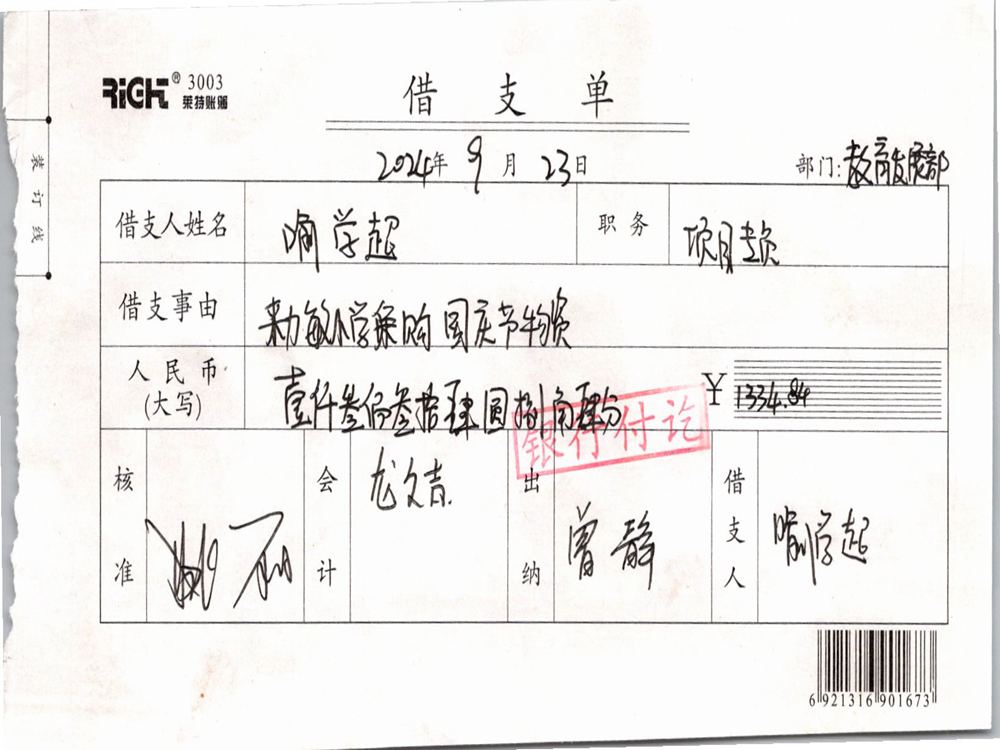 RiGHT® 3003
莱特账簿
借支单
2024年 9月 23日 部门: 教育发展部
装订线
借支人姓名 喻学起 职务 项目专员
借支事由 敏小学采购国庆节物资
人民币(大写) 壹仟叁佰叁拾肆圆捌角肆分 ¥ 1334.84
银行付讫
核准 会计 龙文吉 出纳 曾静 借支人 喻学起
6 921316 901673